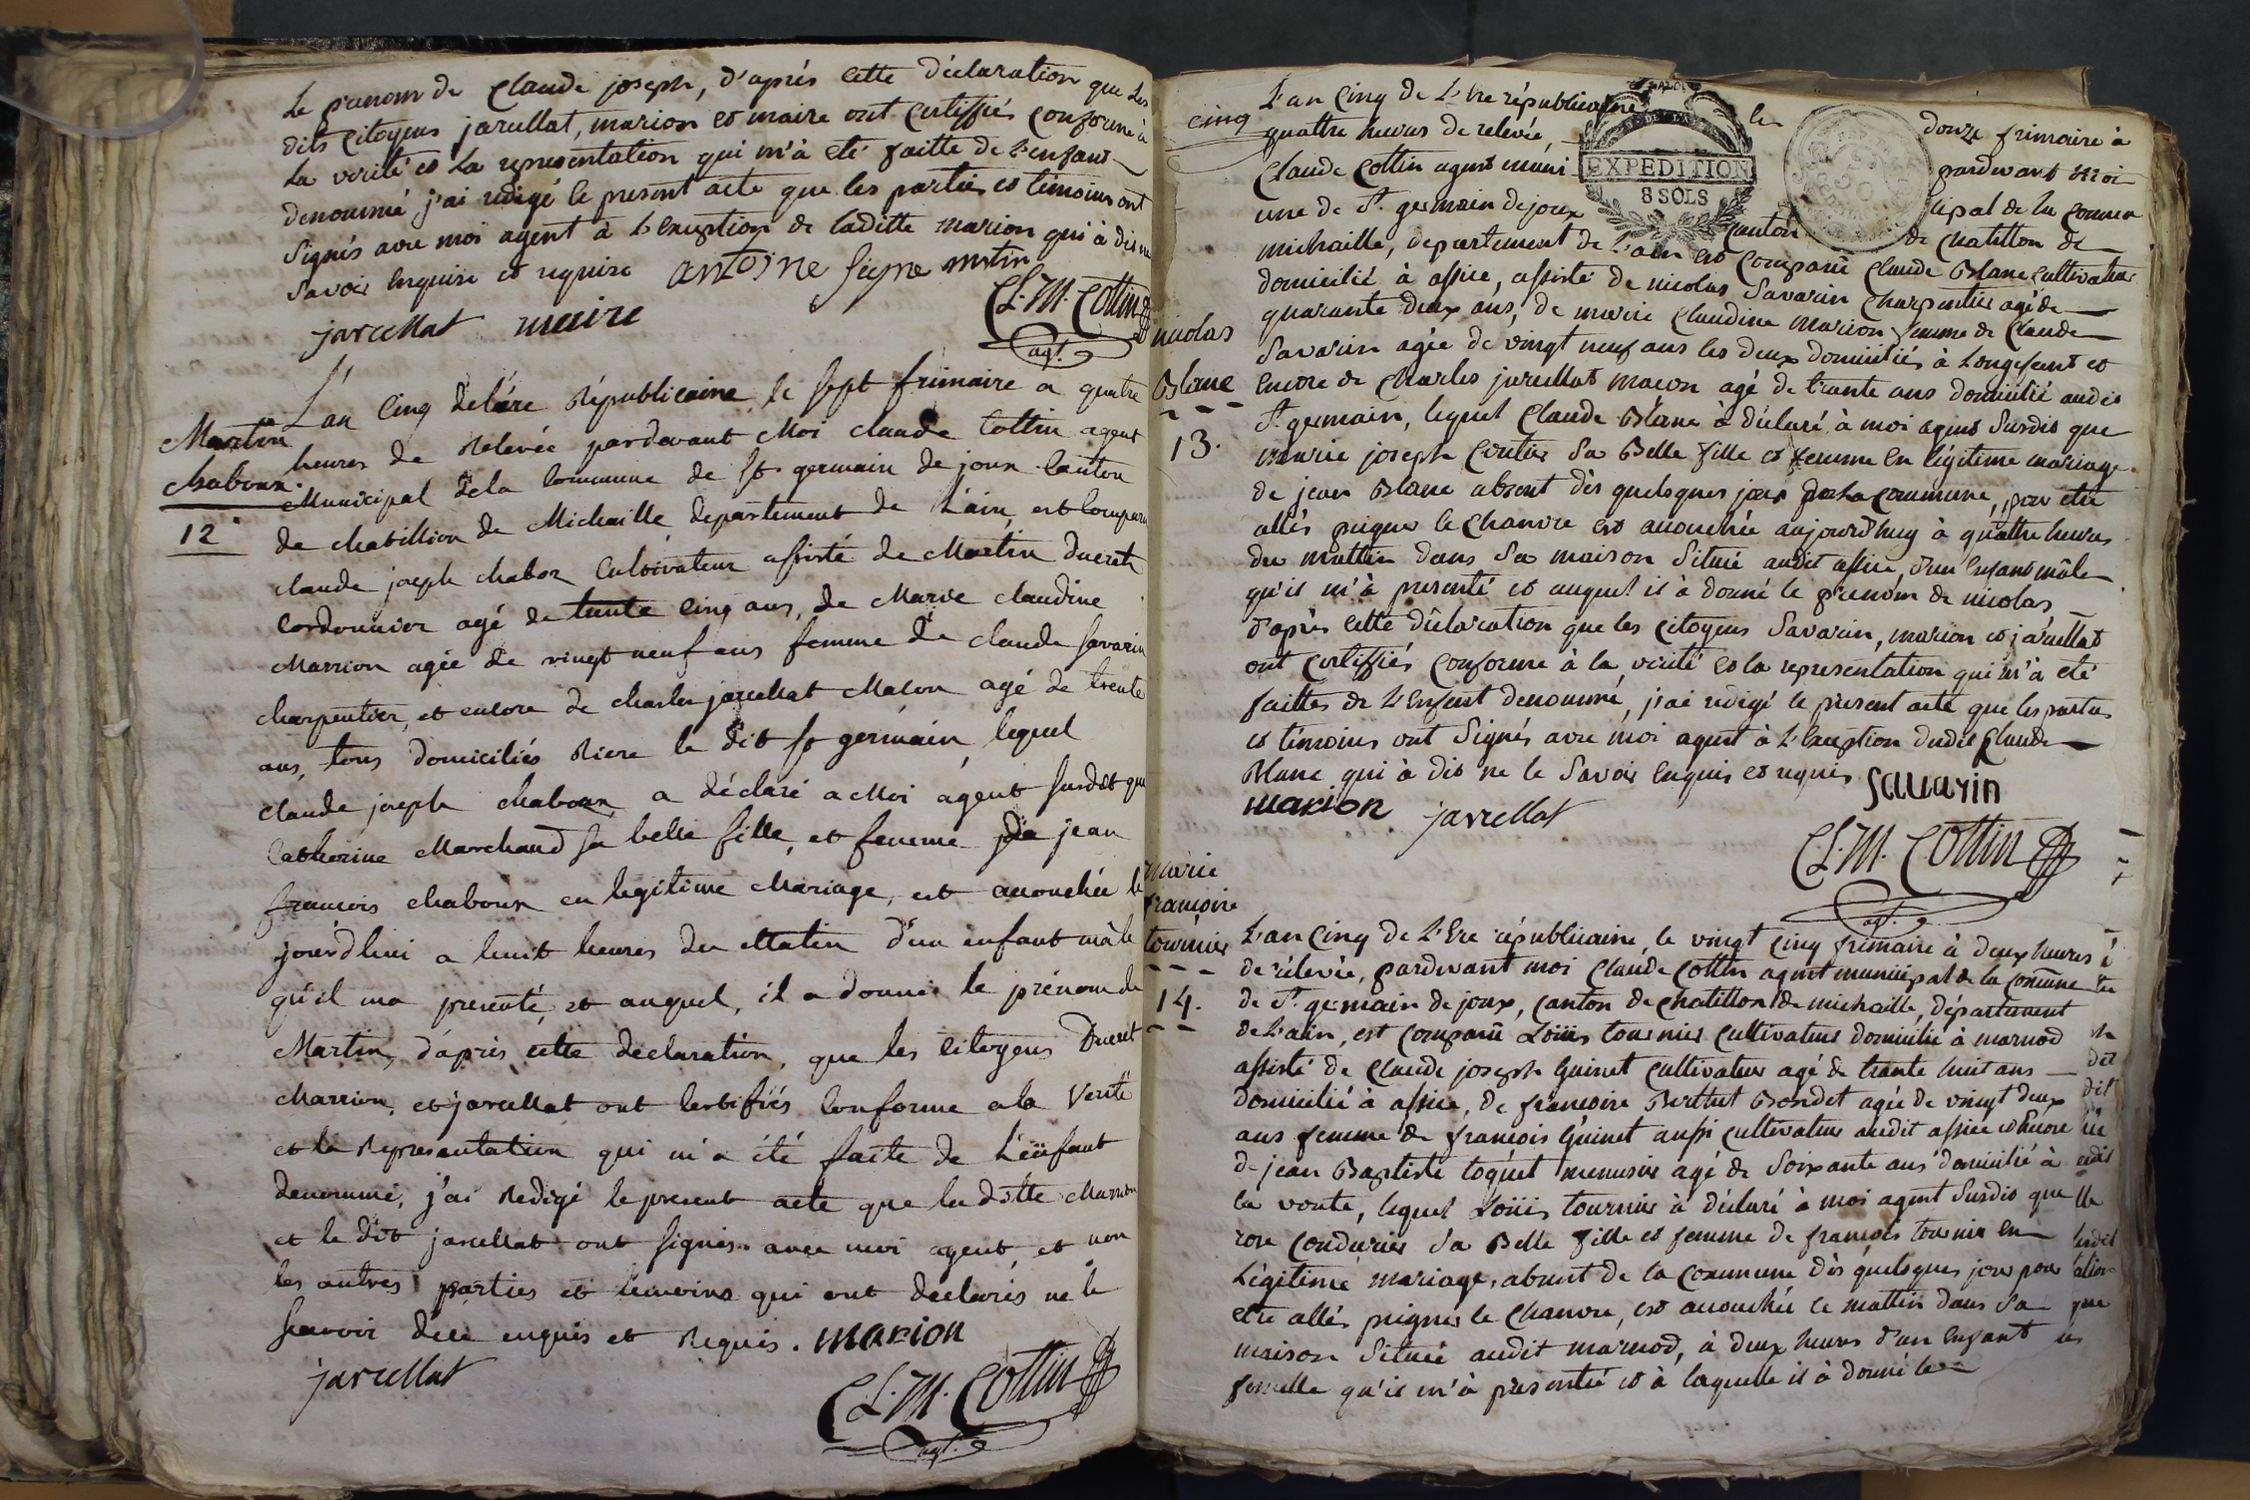 Le prenom de Claude joseph, d'aprés cette déclaration que Les
dits Citoyens jarcellat, marion et maire ont certiffiés conforme à
La verité et La representation qui m'à eté faitte de L'enfant
denommé j'ai redigé le present acte que les parties et témoins ont
Signés avec moi agent à L'exception de laditte marion qui à dit ne
Savoir enquise et requise antoine seigne mrtin
jarcellat maire Cl. M. Cottin
agt.
Martin
chaboux.
12
L'an Cinq deL'ére Républicaine le sept frimaire a quatre
heures de Relevée pardevant Moi claude Cottin agent
Municipal dela Commune de St. germain de joux Canton
de chatillion de Michaille, departement de L'ain, est Comparu
claude joseph chabox Cultivateur assisté de Martin Ducret
Cordonnier agé de trente cinq ans, de Marie claudine
Marrion agée de vingt neuf ans femme de claude savarin
charpentier, et encore de charles jarcellat Maçon agé de trente
ans, tous domiciliés Riere le dit st germain, lequel
claude joseph chaboux, a déclaré a Moi agent susdit que
Catherine Marchand sa belle fille, et femme de jean
francois chaboux en legitime Mariage, est accouchée le
jourd'hui a huit heures du Matin d'un enfant mâle
qu'il ma presenté, et auquel, il a donné le prénom de
Martin, d'aprés cette declaration, que les citoyens Ducret
Marrion, et jarcellat ont certifiés Conforme ala Verité
et la Representation qui m'a été faite de L'enfant
denommé, j'ai Redigé le present acte que la ditte Marrion
et le dit jarcellat ont signés avec moi agent, et non
les autres parties et temoins qui ont declarés ne le
scavoir de ce enquis et Requis. marion
jarcellat
Cl. M. Cottin
agt.
cinq
L'an Cinq de L'Ere républicaine le douze frimaire à
quattre heures de relevée, pardevant moi
Claude Cottin agent municipal de la commu
une de St. germain dejoux Canton de Chatillon de
EXPEDITION
8 SOLS
michaille, departement de L'ain est comparu Claude Blanc cultivateur
domicilié à assiée, assisté de nicolas Savarin Charpentier agé de
quarante deux ans, de marie Claudine marion femme de Claude
Savarin agée de vingt neuf ans les deux domiciliés à Longefand et
encore de Charles jarcellat macon agé de trante ans domicilié audit
St germain, lequel Claude Blanc à déclaré à moi agent Susdit que
nicolas
Blanc
13.
marie joseph Coutier Sa Belle fille et femme en légitime mariage
de jean Blanc absent dès quelques jours de la commune, pour etre
allés peigner le Chanvre est accouchée aujourd'huy à quattre heures
du mattin dans Sa maison Située audit assiée, d'un Enfant mâle
qu'il m'à presenté et auquel il à donné le prenom de nicolas
d'aprés cette déclaration que les citoyens Savarin, marion et jarcellat
ont certiffiés conforme à la vérité et la representation qui m'à eté
faitte de L'Enfant denommé, j'ai redigé le présent acte que les parties
et témoins ont Signés avec moi agent à L'Exception dudit Claude
Blanc qui à dit ne le Savoir enquis et requis Sauarin
marion jarcellat
Cl. M. Cottin
agt.
marie
francoise
tournier
14.
L'an Cinq de L'Ere républicaine, le vingt cinq frimaire à deux heures
de rélevée, pardevant moi Claude Cottin agent municipal de la commune
de St. germain de joux, Canton de Chatillon de michaille, département
de L'ain, est comparu Loüis tournier cultivateur domicilié à marnod
assisté de Claude joseph Guinet cultivateur agé de trante huit ans
domicilié à assiée, de francoise Berthet Bondet agée de vingt deux
ans femme de françois Guinet aussi cultivateur audit assiée et Encore
de jean Baptiste toquet menusier agé de Soixante ans domicilié à
la voute, lequel Loüis tournier à déclaré à moi agent Susdit que
rose Condurier Sa Belle fille et femme de françois tournier en
Légitime mariage, absent de la Commune dès quelques jours pour
etre allés peigner le Chanvre, est accouchée ce mattin dans Sa
maison Située audit marnod, à deux heures d'un Enfant
femelle qu'il m'à présenté et à laquelle il à donné le